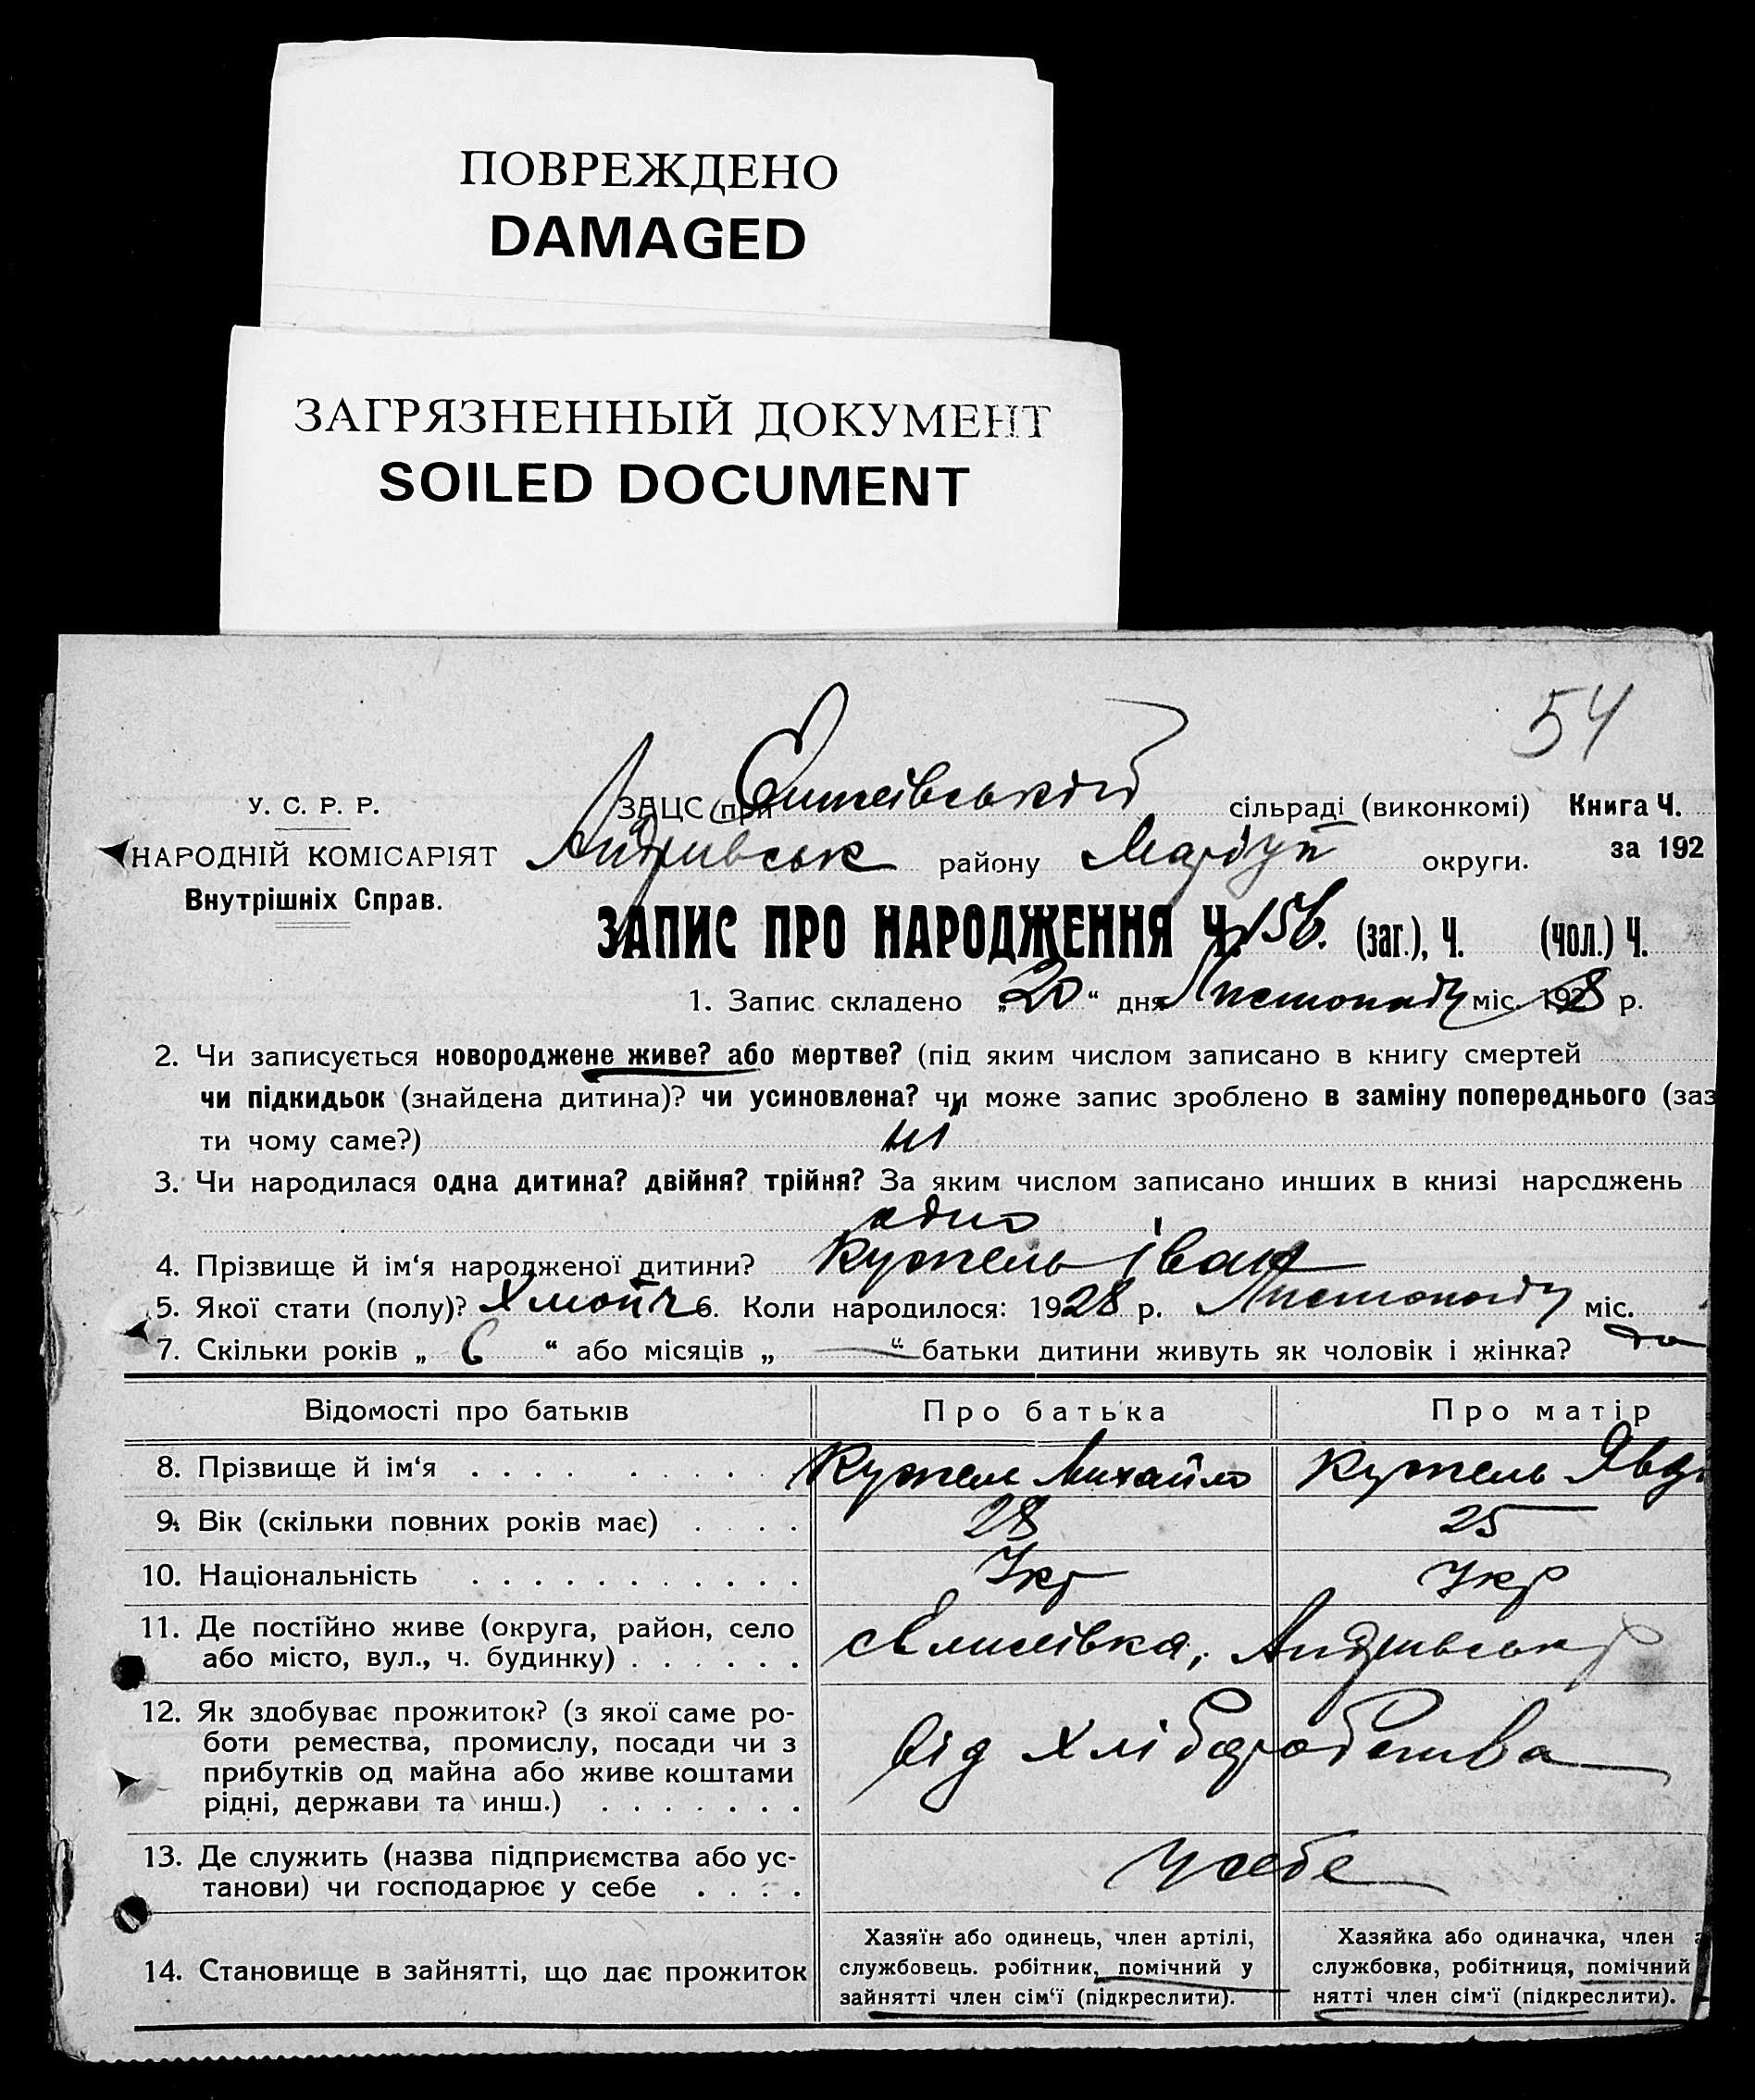 ПОВРЕЖДЕНО
DAMAGED
ЗАГРЯЗНЕННЫЙ ДОКУМЕНТ
SOILED DOCUMENT
54
У. С. Р. Р.
НАРОДНІЙ КОМІСАРІЯТ
Внутрішніх Справ.
ЗАЦС при сільраді (виконкомі) Книга Ч.
району Маріуп округи. за 192
ЗАПИС ПРО НАРОДЖЕННЯ Ч. 156. (заг.), Ч. (чол.) Ч.
1. Запис складено „20“ дня Листопаду міс. 1928 р.
2. Чи записується новороджене живе? або мертве? (під яким числом записано в книгу смертей
чи підкидьок (знайдена дитина)? чи усиновлена? чи може запис зроблено в заміну попереднього (заз
ти чому саме?) ні
3. Чи народилася одна дитина? двійня? трійня? За яким числом записано инших в книзі народжень
одно
4. Прізвище й ім‘я народженої дитини? Кужель Іван
5. Якої стати (полу)? 6. Коли народилося: 1928 р. Листопаду міс.
7. Скільки років „ 6 “ або місяців „ — “ батьки дитини живуть як чоловік і жінка? да
Відомості про батьків Про батька Про матір
8. Прізвище й ім‘я . . . . . . . . . Кужель Михайло Кужель Явд
9. Вік (скільки повних років має) . . . . 28 25
10. Національність . . . . . . . . . . . . Укр Укр
11. Де постійно живе (округа, район, село
або місто, вул., ч. будинку) . . . . . .
12. Як здобуває прожиток? (з якої саме ро-
боти ремества, промислу, посади чи з
прибутків од майна або живе коштами
рідні, держави та инш.) . . . . . . . від хліборобства
13. Де служить (назва підприємства або ус-
танови) чи господарює у себе . . . . у себе
14. Становище в зайнятті, що дає прожиток
Хазяїн або одинець, член артілі,
службовець. робітник, помічний у
зайнятті член сім‘ї (підкреслити).
Хазяйка або одиначка, член
службовка, робітниця, помічний
нятті член сім‘ї (підкреслити).